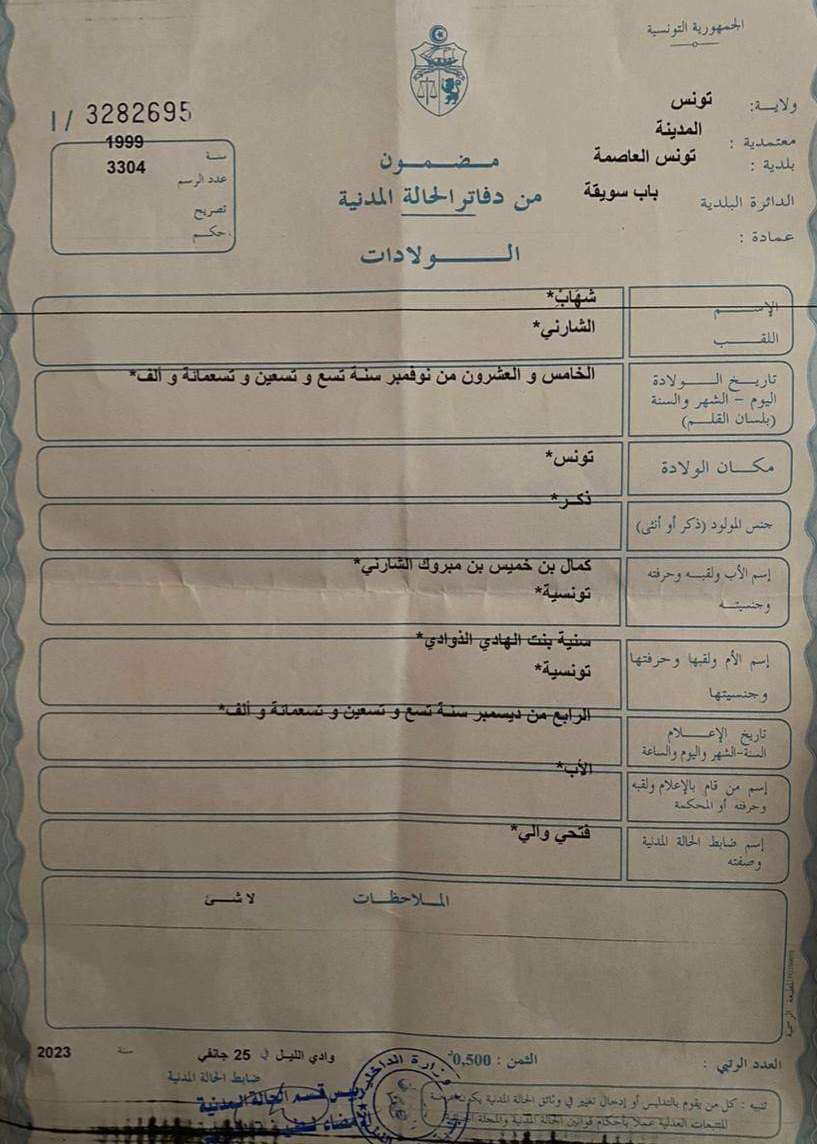 الجمهورية التونسية
ولاية: تونس
معتمدية : المدينة
بلدية : تونس العاصمة
الدائرة البلدية باب سويقة
عمادة :
I / 3282695
سنة 1999
عدد الرسم 3304
تصريح
حكم
مضمون
من دفاتر الحالة المدنية
الولادات
الإسم شهَابْ*
اللقب الشارني*
تاريخ الولادة الخامس و العشرون من نوفمبر سنة تسع و تسعين و تسعمائة و ألف*
اليوم - الشهر والسنة
(بلسان القلم)
مكان الولادة تونس*
ذكر*
جنس المولود (ذكر أو أنثى)
إسم الأب ولقبه وحرفته كمال بن خميس بن مبروك الشارني*
وجنسيته تونسية*
سنية بنت الهادي الذوادي*
إسم الأم ولقبها وحرفتها تونسية*
وجنسيتها
الرابع من ديسمبر سنة تسع و تسعين و تسعمائة و ألف*
تاريخ الإعلام
السنة-الشهر واليوم والساعة
الأب*
إسم من قام بالإعلام ولقبه
وحرفته أو المحكمة
إسم ضابط الحالة المدنية فتحي والي*
وصفته
الملاحظات لا شئ
العدد الرتبي : الثمن : 0,500 وادي الليل في 25 جانفي سنة 2023
ضابط الحالة المدنية
رئيس قسم الحالة المدنية
وزارة الداخلية
تنبيه : كل من يقوم بالتدليس أو إدخال تغيير في وثائق الحالة المدنية يكون عرضة
للتتبعات العدلية عملا بأحكام قوانين الحالة المدنية والمجلة الجزائية